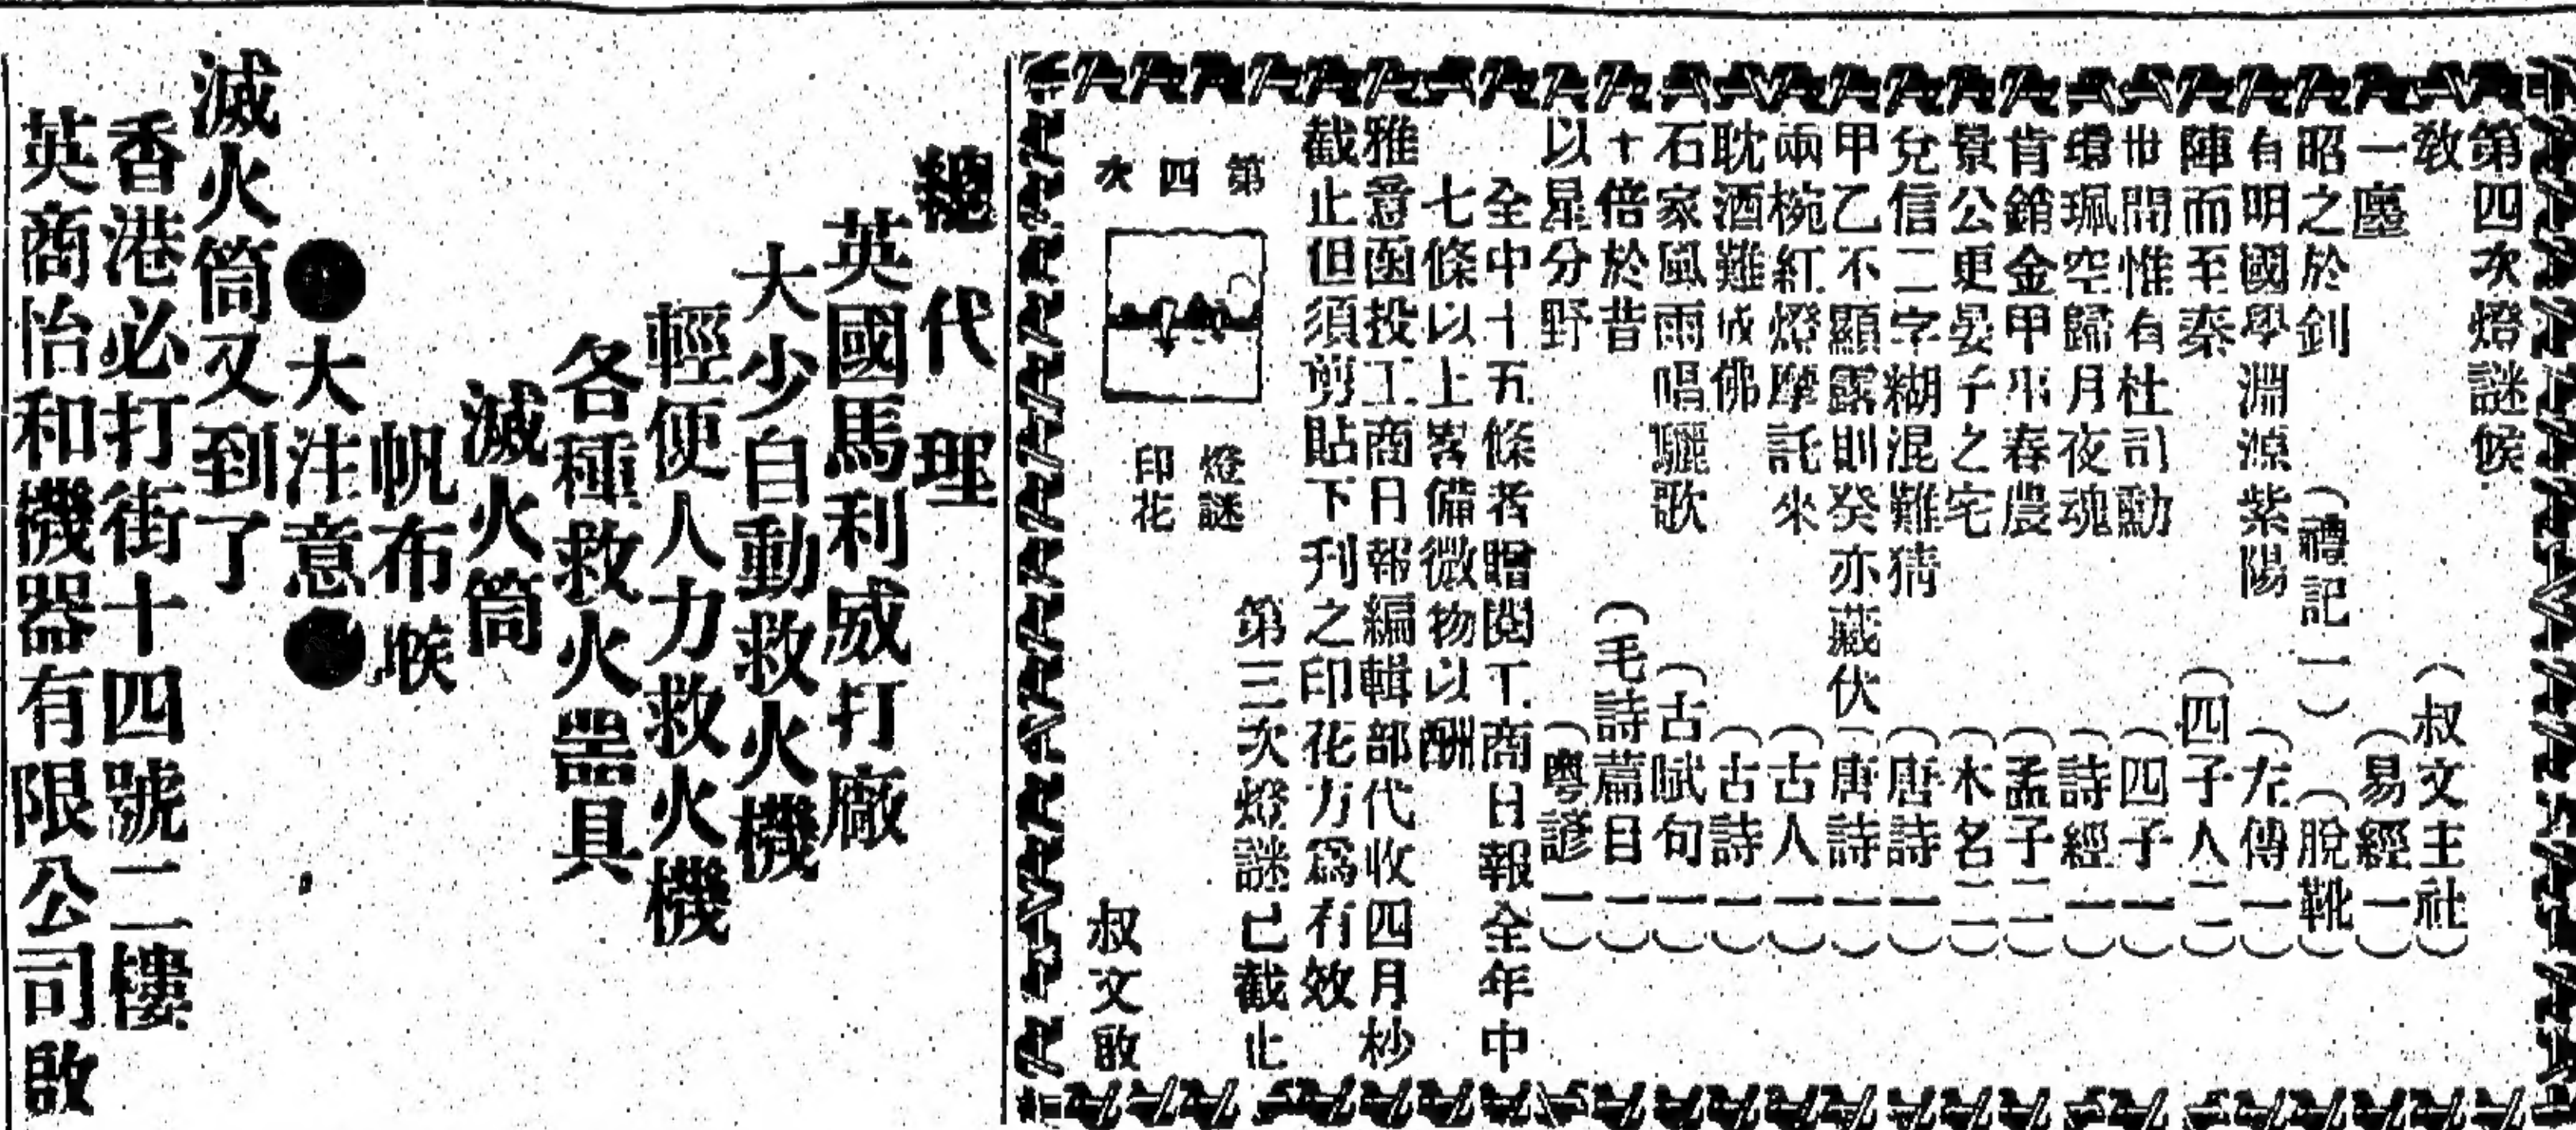 第四次燈謎候
教　（叔文主社）
一鏖　（易經一）
昭之於釗　（禮記一）（脫靴）
有明國學淵源紫陽　（左傳一）
陣而至秦　（四子人二）
世間惟有杜司勳　（四子一）
環珮空歸月夜魂　（詩經一）
肯銷金甲事春農　（孟子二）
景公更晏子之宅　（木名二）
兌信二字糊混難猜　（唐詩一）
甲乙不顯露則癸亦藏伏（唐詩一）
兩椀紅燈摩託來　（古人一）
耽酒難成佛　（古詩一）
石家風雨唱驪歌　（古賦句一）
十倍於昔　（毛詩篇目一）
以星分野　（粵諺一）
全中十五條者贈閱工商日報全年中
七條以上畧備微物以酬
雅意函投工商日報編輯部代收四月杪
截止但須剪貼下刋之印花方爲有效
第三次燈謎已截止
第四次
燈謎
印花
叔文啟
總代理
英國馬利威打廠
大少自動救火機
輕便人力救火機
各種救火器具
滅火筒
帆布喉
●大注意●
滅火筒又到了
香港必打街十四號二樓
英商怡和機器有限公司啟